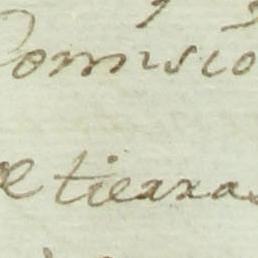 Comisió
e tierras